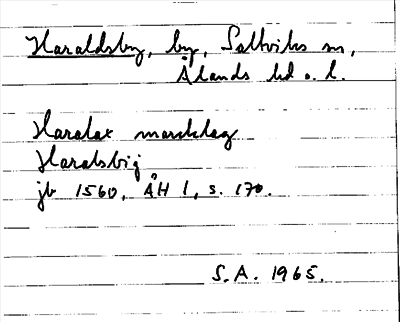 Haraldsby, by, Saltviks sn,
Ålands hd o. l.
Haralax marchlag
Haralsbij
jb 1560, ÅH 1, s. 170.
S.A. 1965.